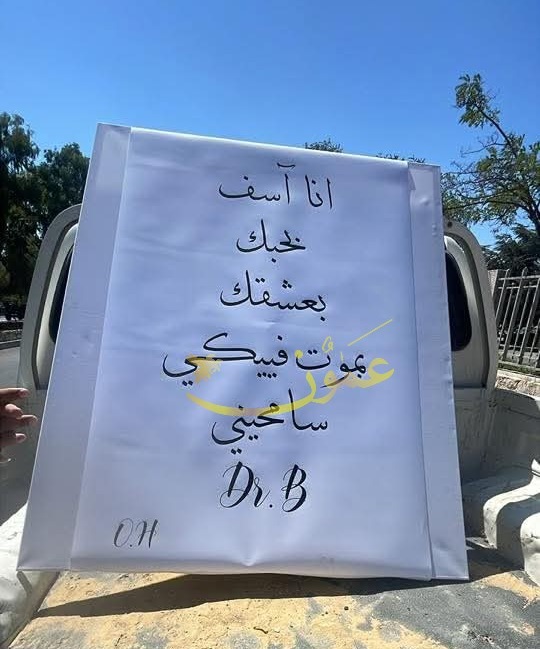 انا آسف
بحبك
بعشقك
بموت فييكي
عمون
سامحيني
Dr. B
O.H